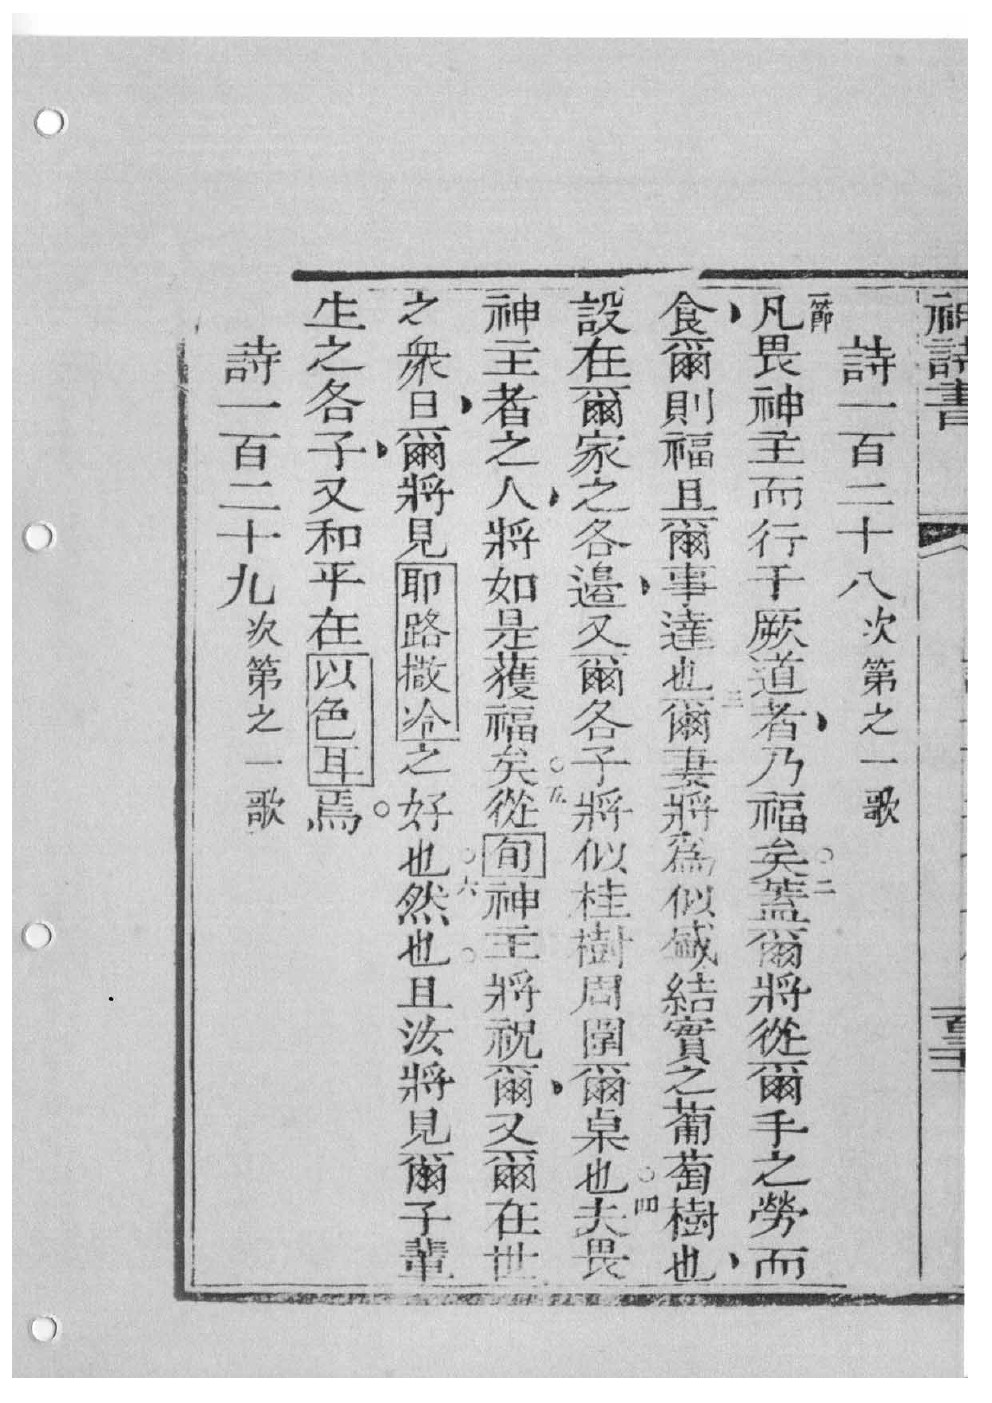 神詩書
詩一百二十八次第之一歌
一節凡畏神主而行于厥道者乃福矣○二蓋爾將從爾手之勞而
食爾則福且爾事達也三爾妻將為似盛結實之葡萄樹也
設在爾家之各邊又爾各子將似桂樹周圍爾桌也○四夫畏
神主者之人將如是獲福矣○五從旬神主將祝爾又爾在世
之衆日爾將見耶路撒冷之好也○六然也○且汝將見爾子輩
生之各子又和平在以色耳焉○
詩一百二十九次第之一歌